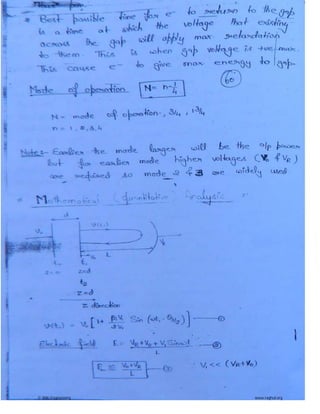 * Best possible time for e⁻ to return to the gap
is a time at which the voltage that existing
across the gap will apply max retardation
to them. This is when gap voltage is +ve max.
This cause e⁻ to give max energy to gap.
60
Mode of operation N = n - 1/4
N - mode of operation, 3/4, 1 3/4
n = 1, 2, 3, 4
Note:- Earlier the mode larger will be the o/p power
but for earlier mode higher voltages (V & VR)
are required so mode 2 & 3 are widely used.
* Mathematical (quantitative) Analysis :-
d
L
t₁
z=d
t₂
z=d
z direction
v(t₁) = V₀ [1 + βiV₁/2V₀ Sin (ωt₁ - θg/2)] — ①
Electric field E = VR + V₀ + V₁ Sinωt / L — ②
E = VR + V₀ / L — ③ ∵ V₁ << (VR + V₀)
www.raghul.org